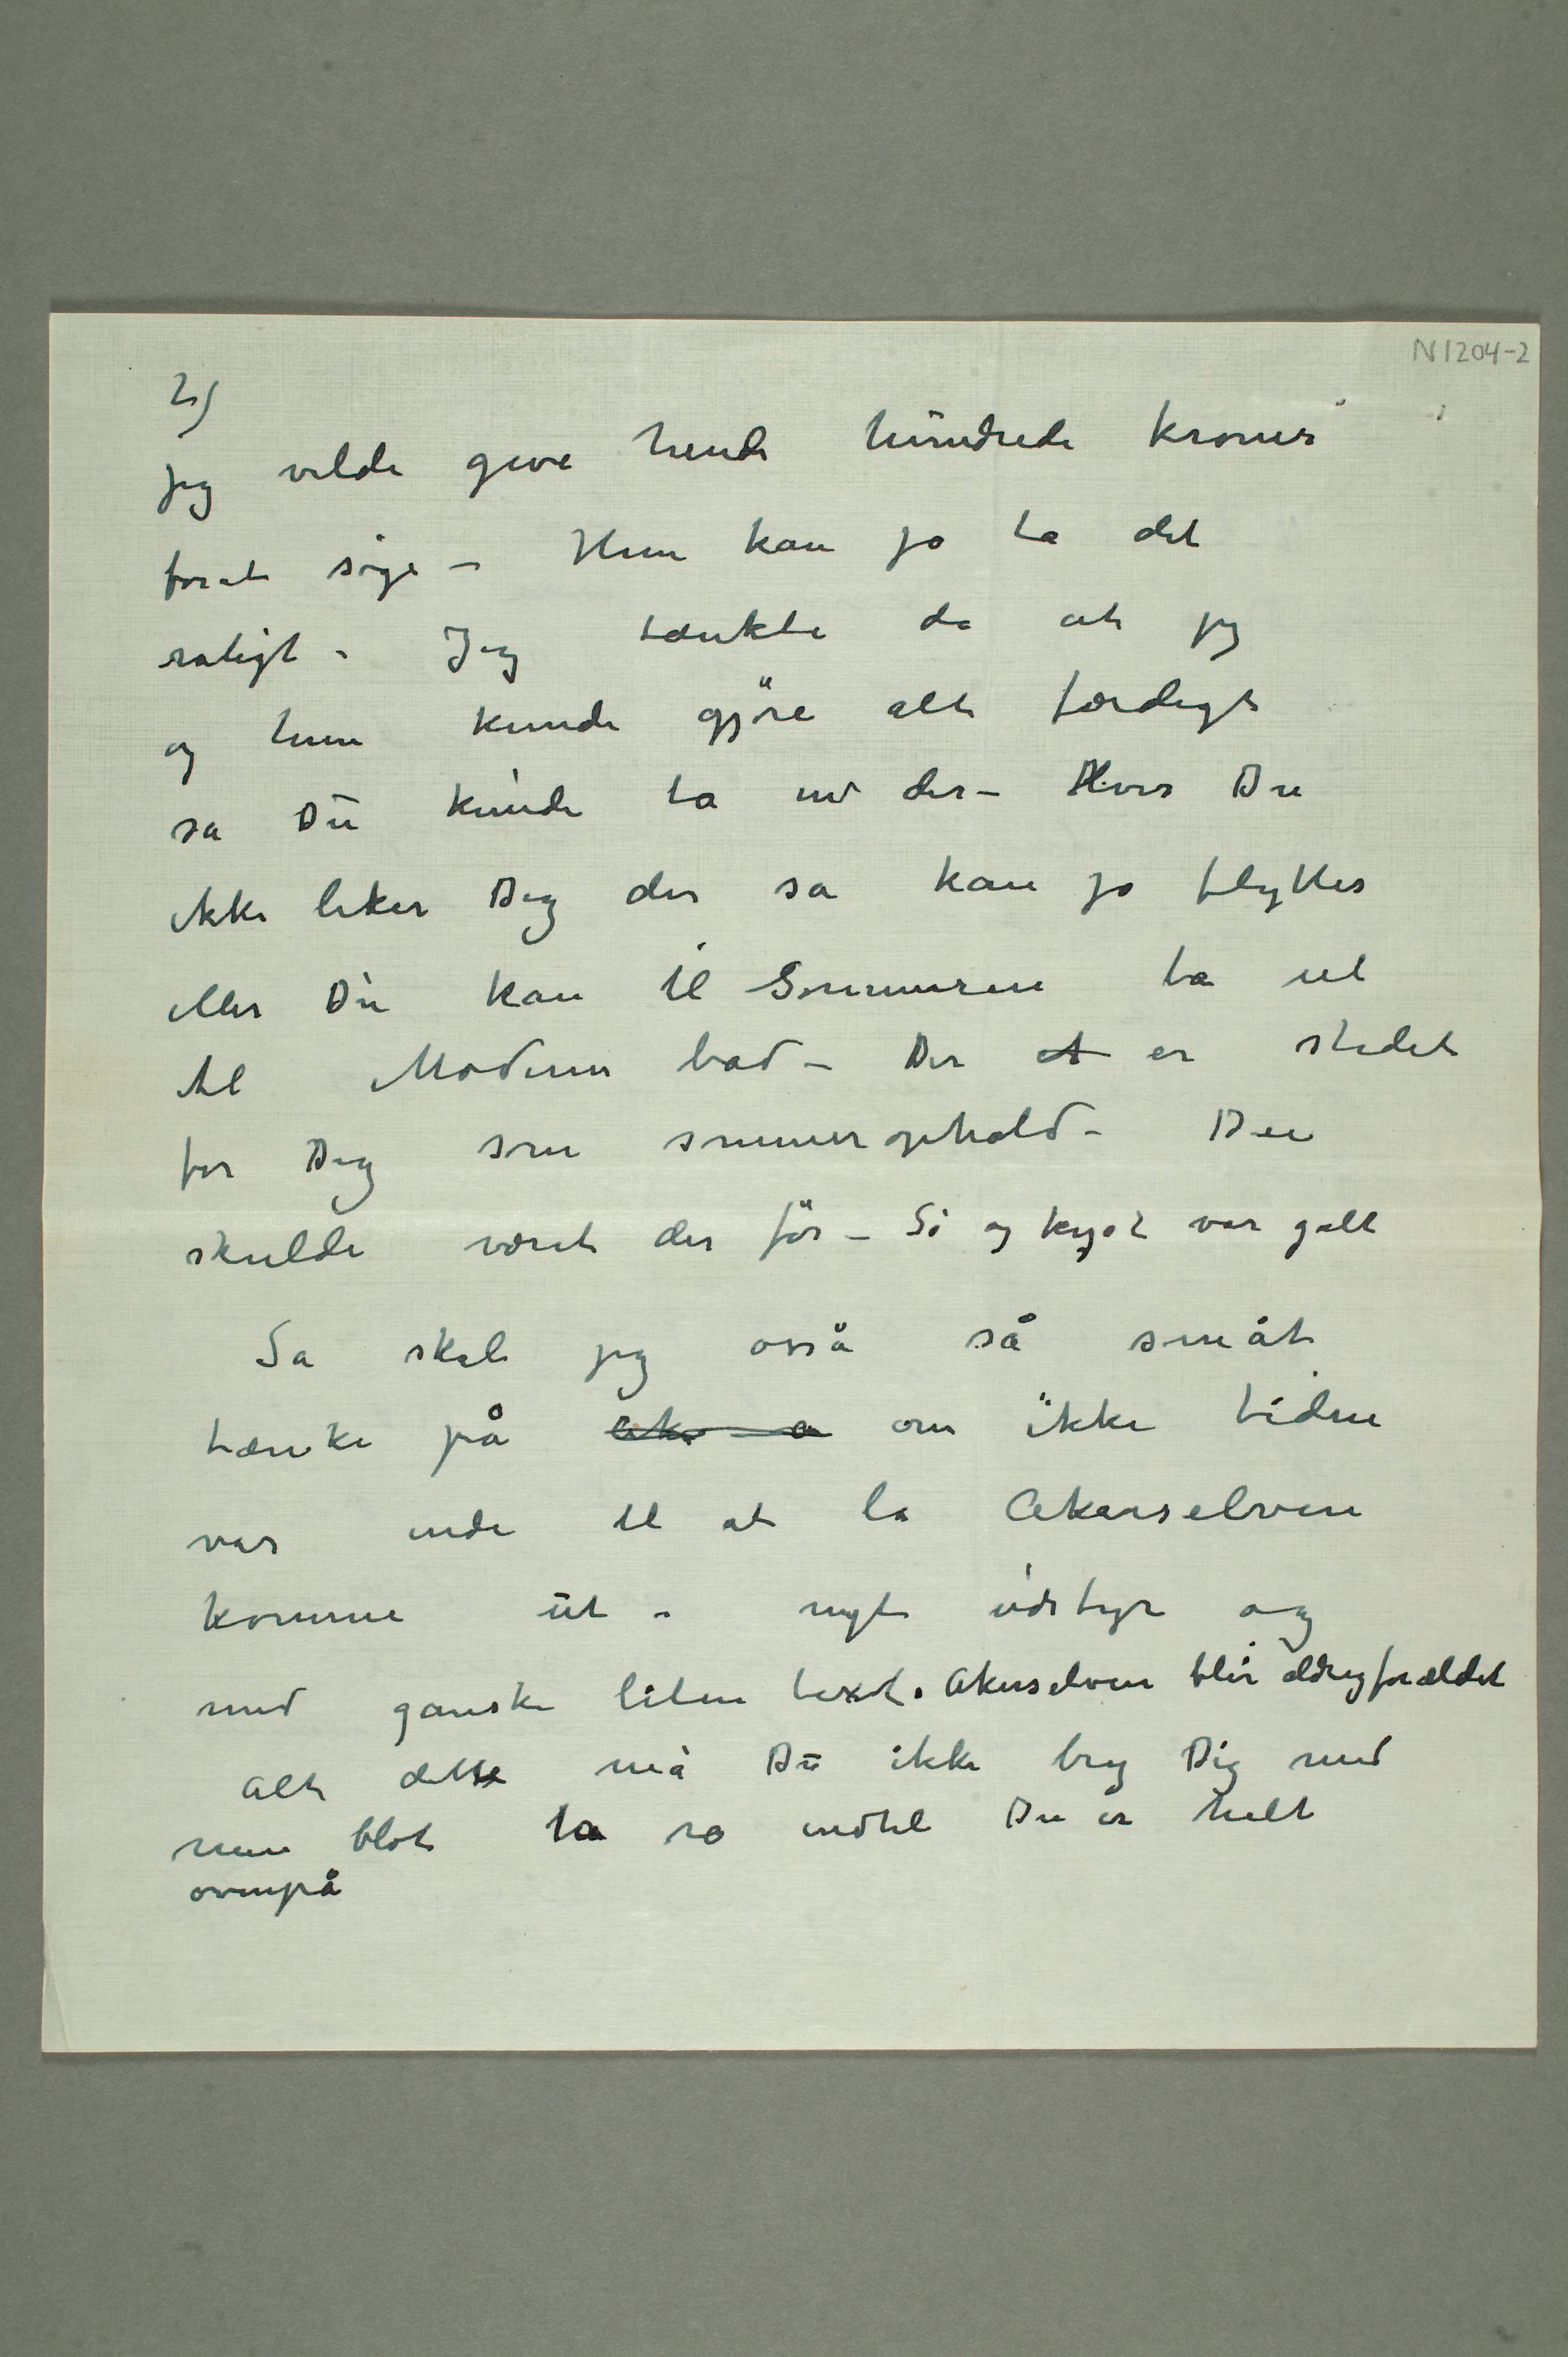 N1204-2
2)
jeg vilde give hende hundrede kroner
forat søge – Hun kan jo ta det
roligt – Jeg tænkte da at jeg
og hun kunde gjøre alt færdigt
sa Du kunde ta ind der – Hvis Du
ikke liker Dig der sa kan jo flyttes
eller Du kan til Sommeren ta ut
til Modums bad – Der er stedet
for Dig som sommerophold – Du
skulde været der før – Sø og kyst var galt
Sa skal jeg osså så småt
tænke på om ikke tiden
var inde til at la Akerselven
komme ut i nyt udstyr og
med ganske liten text. Akerselven blir aldrig forældet
Alt dette må Du ikke bry Dig med
men blot ta ro indtil Du er helt
ovenpå